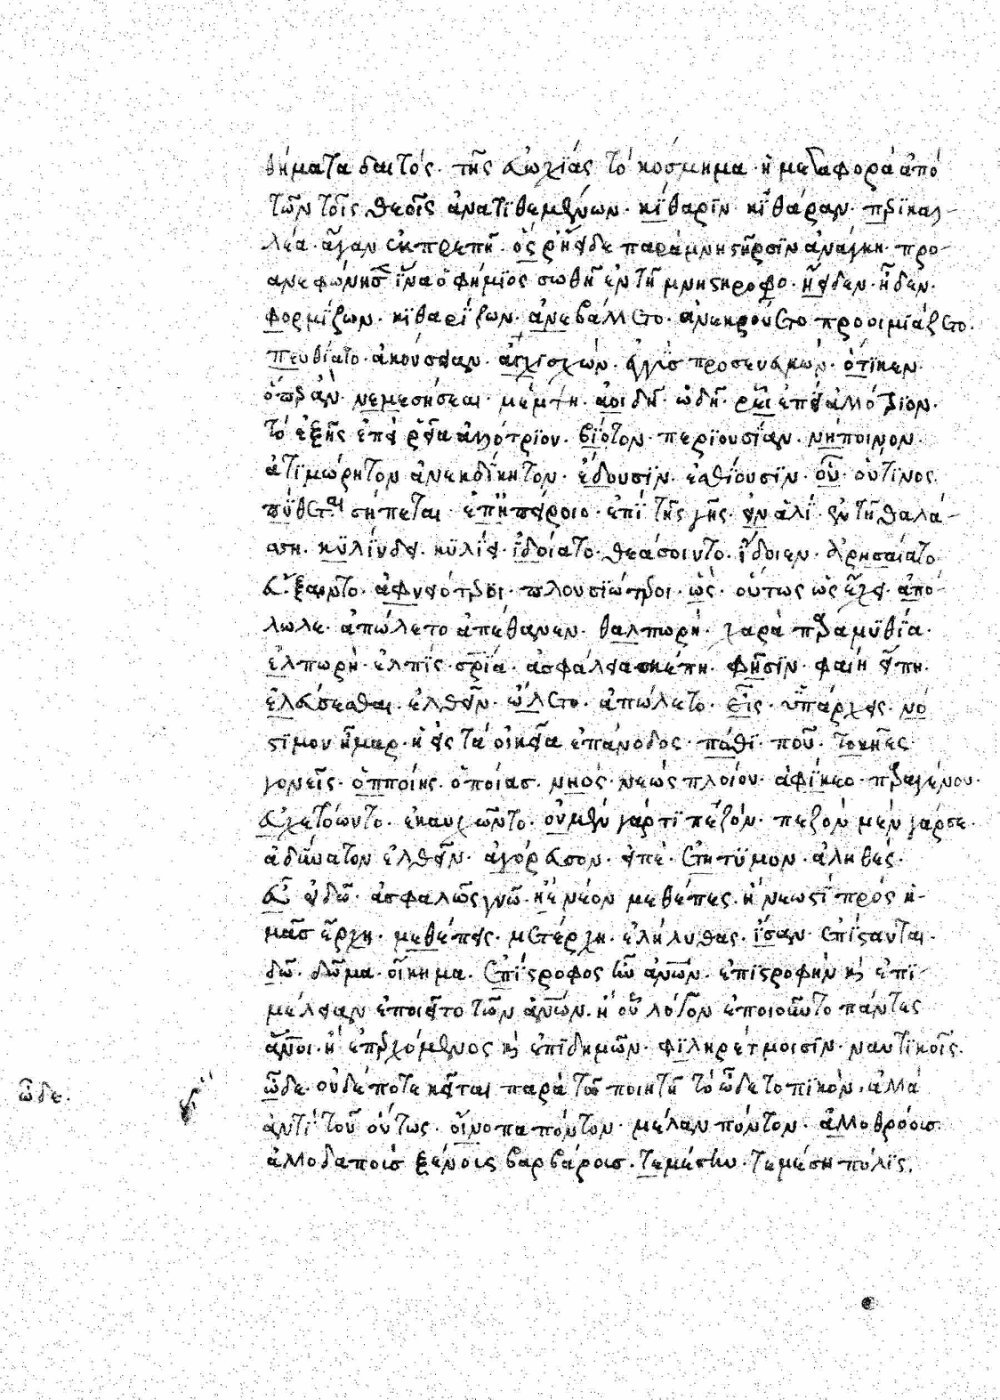 θήματα δαιτός· τῆς εὐωχίας τὸ κόσμημα· ἡ μεταφορὰ ἀπὸ
τῶν τοῖς θεοῖς ἀνατιθεμένων· κίθαριν· κιθάραν· περικαλ-
λέα· ἄγαν εὐπρεπῆ· ὅς ῥ' ἤειδε παρὰ μνηστῆρσιν ἀνάγκη· προ-
ανεφώνησεν ἵνα ὁ φήμιος σωθῇ ἐν τῇ μνηστηροφο· ἤειδεν· ᾖδεν·
φορμίζων· κιθαρίζων· ἀνεβάλλετο· ἀνεκρούετο προοιμιάζετο·
πευθοίατο· ἀκούσειαν· ἄγχι σχών· ἐγγὺς προσενεγκών· ὅτι κεν·
ὅπερ ἄν· νεμεσήσεαι· μέμψῃ· ἀοιδή· ᾠδή· ῥεῖ' ἐπεὶ ἀλλότριον·
τὸ ἑξῆς ἐπεὶ ῥεῖα ἀλλότριον· βίοτον· περιουσίαν· νήποινον·
ἀτιμώρητον ἀνεκδίκητον· ἔδουσιν· ἐσθίουσιν· οὗ· οὗτινος·
πύθεται σήπεται· ἐπ' ἠπείροιο· ἐπὶ τῆς γῆς· εἰν ἁλί· ἐν τῇ θαλά-
σση· κυλίνδει· κυλίει· ἰδοίατο· θεάσοιντο· ἴδοιεν· ἀρησαίατο
εὔξαιντο· ἀφνειότεροι· πλουσιώτεροι· ὥς· οὕτως ὡς εἶχε· ἀπό-
λωλε· ἀπώλετο ἀπέθανεν· θαλπωρή· χαρὰ παραμυθία·
ἐλπωρή· ἐλπίς· σωτηρία· ἀσφάλεια σκέπη· φῆσιν· φαίη εἴπῃ·
ἐλεύσεσθαι· ἐλθεῖν· ὤλετο· ἀπώλετο· εἷς· ὑπάρχεις· νό
στιμον ἦμαρ· ἡ εἰς τὰ οἰκεῖα ἐπάνοδος· πόθι· ποῦ· τοκῆες
γονεῖς· ὁπποίης· ὁποίας· νηός· νεὼς πλοίου· ἀφίκεο· παραγένου·
εὐχετόωντο· ἐκαυχῶντο· οὐ μὲν γάρ τι πεζόν· πεζὸν μὲν γάρ σε
ἀδύνατον ἐλθεῖν· ἀγόρευσον· εἰπέ· ἐτήτυμον· ἀληθές·
εὖ εἰδῶ· ἀσφαλῶς γνῶ· ἠὲ νέον μεθέπεις· ἢ νεωστὶ πρὸς ἡ-
μᾶς ἔρχῃ· μεθέπεις· μετέρχῃ· ἐλήλυθας· ἴσαν· ἐπίστανται·
δῶ· δῶμα· οἴκημα· ἐπίστροφος ἦν ἀνθρώπων· ἐπιστροφὴν καὶ ἐπι-
μέλειαν ἐποιεῖτο τῶν ἀνθρώπων· ἢ οὗ λόγον ἐποιοῦντο πάντες
ἄνθρωποι· ἢ ἐπερχόμενος καὶ ἐπιδημῶν· φιληρέτμοισιν· ναυτικοῖς·
ὧδε· οὐδέποτε κεῖται παρὰ τῷ ποιητῇ τὸ ὧδε τοπικόν· ἀλλὰ
ἀντὶ τοῦ οὕτως· οἴνοπα πόντον· μέλαν πόντον· ἀλλοθρόοις·
ἀλλοδαποῖς ξένοις βαρβάροις· τεμέσην· τεμέση πόλις·
ὧδε·